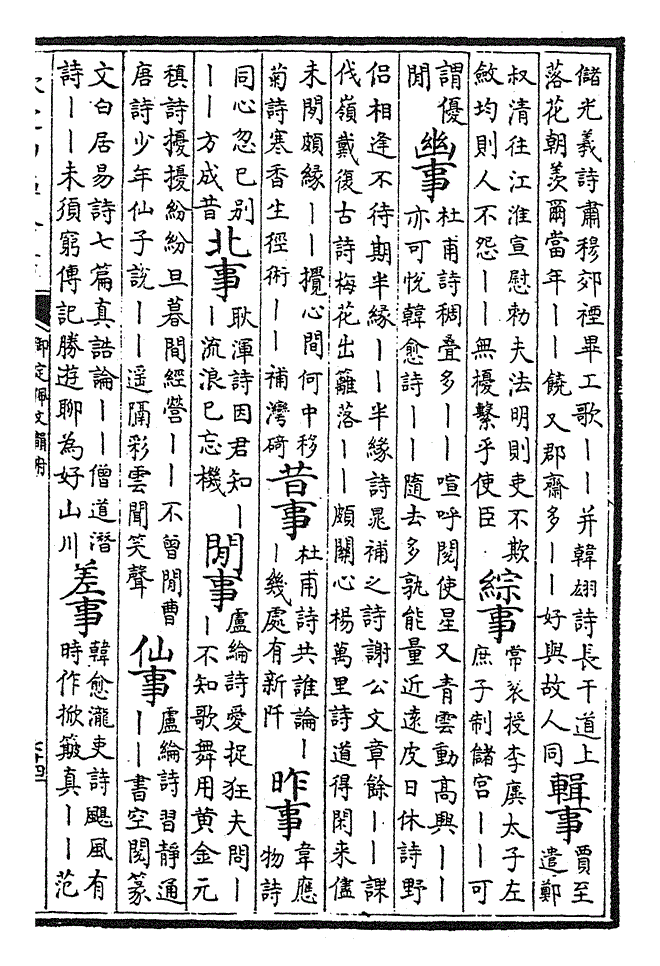 儲光羲詩肅穆郊禋畢工歌丨丨并韓翃詩長干道上
落花朝羨爾當年丨丨饒又郡齋多丨丨好與故人同
輯事
賈至
遣鄭
叔清往江淮宣慰勅夫法明則吏不欺
斂均則人不怨丨丨無擾繫乎使臣
綜事
常袞授李㢖太子左
庶子制儲宮丨丨可
謂優
閒
幽事
杜甫詩稠疊多丨丨喧呼閱使星又青雲動高興丨丨
亦可悅韓愈詩丨丨隨去多孰能量近遠皮日休詩野
侣相逢不待期半緣丨丨半緣詩晁補之詩謝公文章餘丨丨課
伐嶺戴復古詩梅花出籬落丨丨頗關心楊萬里詩道得閑来儘
未閱頗緣丨丨攪心間何中移
菊詩寒香生徑術丨丨補灣碕
昔事
杜甫詩共誰論丨
丨幾處有新阡
昨事
韋應
物詩
同心忽已别
丨丨方成昔
北事
耿湋詩因君知丨
丨流浪已忘機
閒事
盧綸詩愛捉狂夫問丨
丨不知歌舞用黄金元
稹詩擾擾紛紛旦暮間經營丨丨不曾閒曹
唐詩少年仙子說丨丨遥隔彩雲聞笑聲
仙事
盧綸詩習静通
丨丨書空閱篆
文白居易詩七篇真誥論丨丨僧道潛
詩丨丨未須窮傳記勝遊聊為好山川
差事
韓愈瀧吏詩颶風有
時作掀簸真丨丨范
御定佩文韻府